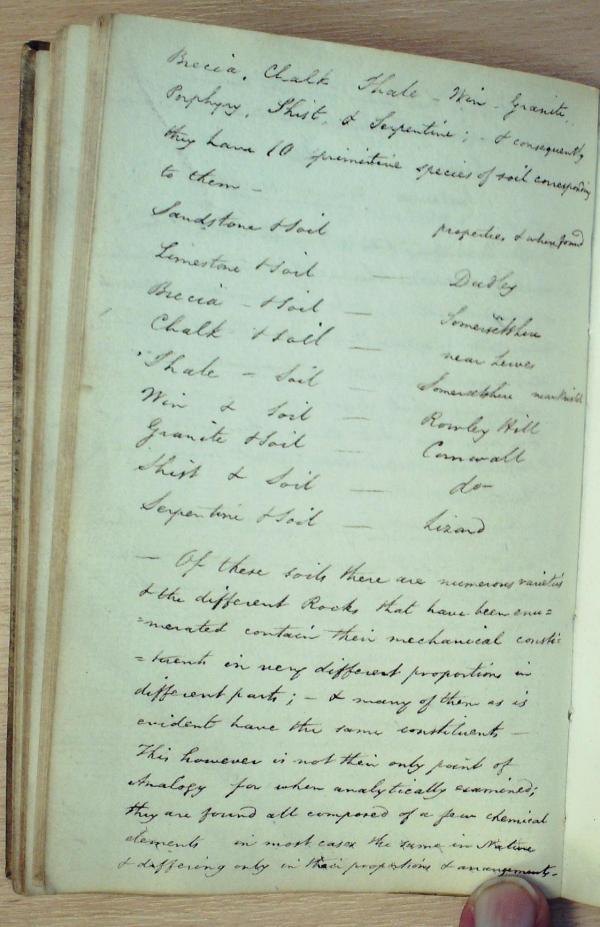 Brecia, Chalk Shale - Win - Granite,
Porphyry, Shist, & Serpentine; - & consequently
they have 10 primitive species of soil corresponding
to them -
properties & where found
Sandstone & Soil
Limestone & Soil — Dudley
Brecia - & Soil — Somersetshire
Chalk & Soil — near Lewes
Shale - Soil — Somersetshire near Bristol
Win & Soil — Rowley Hill
Granite & Soil — Cornwall
Shist & Soil — do-
Serpentine & Soil — Lizard
— Of these soils there are numerous varieties
& the different Rocks that have been enu=
=merated contain their mechanical consti=
=tuents in very different proportions in
different parts; - & many of them as is
evident have the same constituents -
This however is not their only point of
Analogy for when analytically examined;
they are found all composed of a few chemical
elements in most cases the same in Nature
& differing only in their proportions & arrangements.